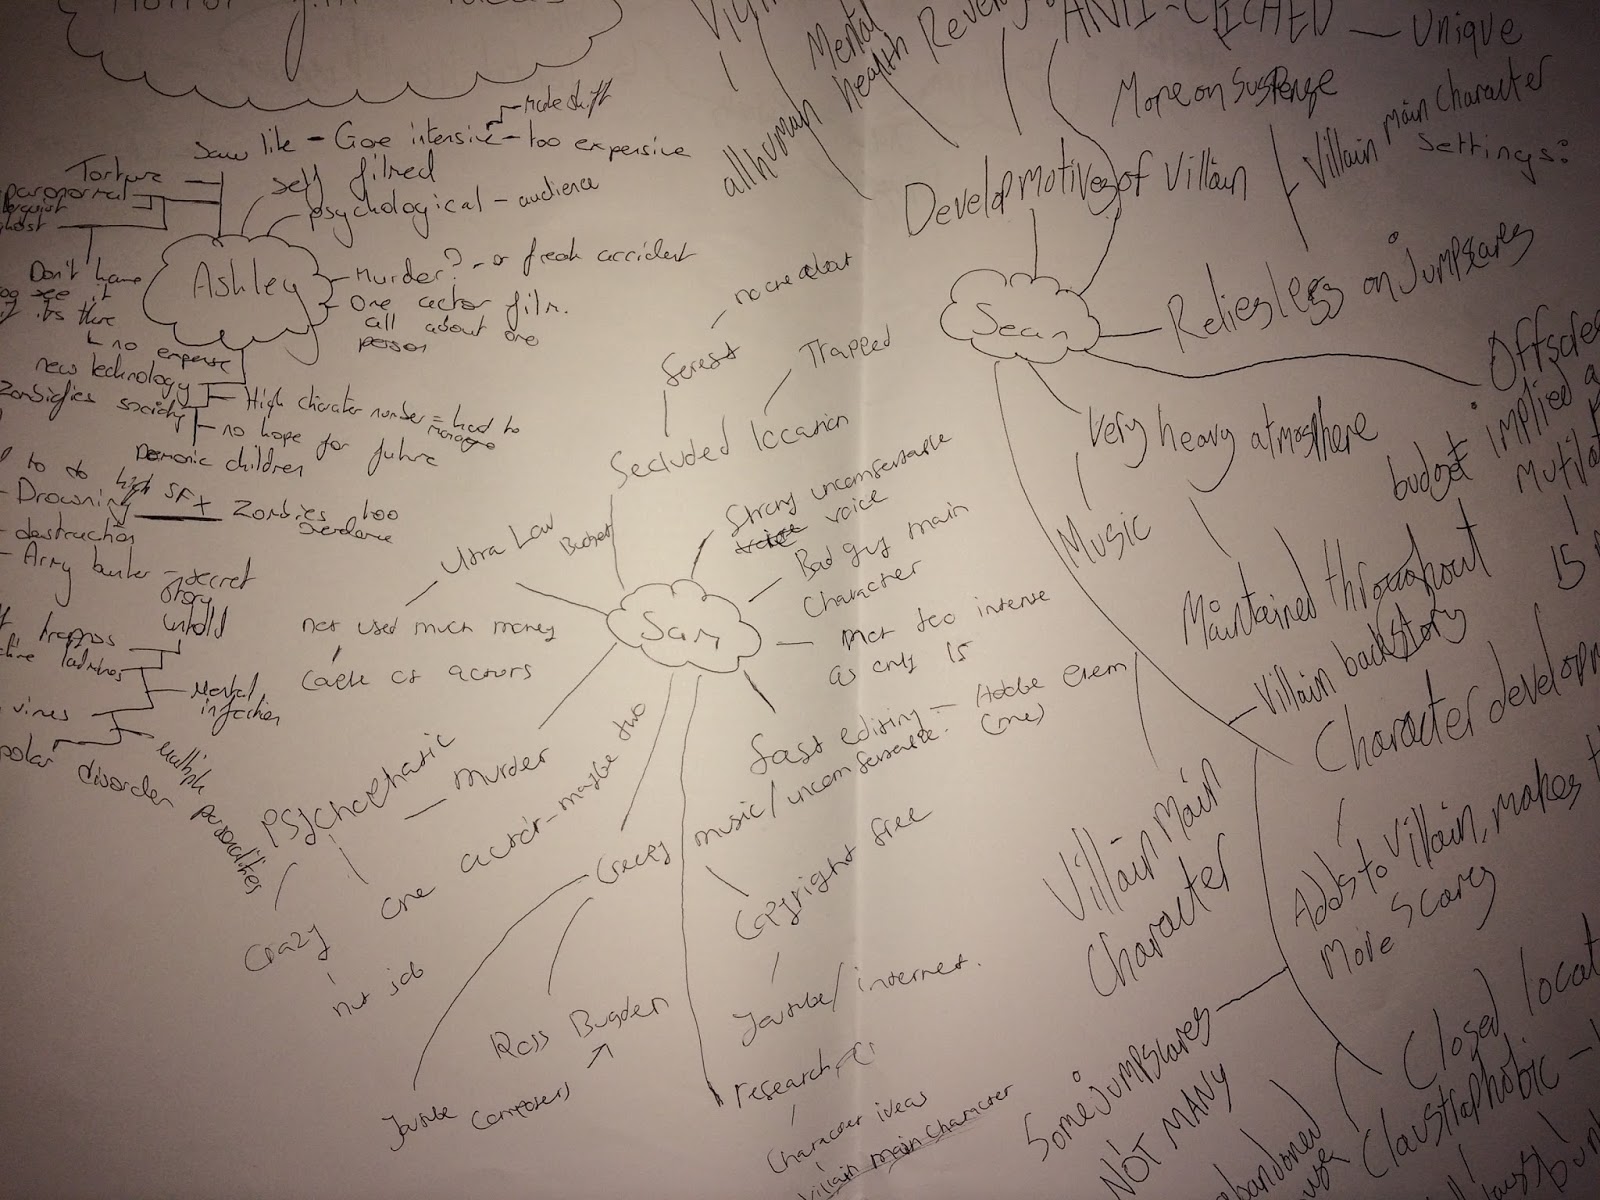 Horror film ideas
Ashley
Saw like - Gore intensive - too expensive
Made shift
Torture
paranormal
ghost
self filmed
psychological - audience
Murder? - or freak accident
One actor film.
all about one
person
Don't have
see it
if its there
no expense
new technology
Zombifies society
High character number = hard to
manage
no hope for future
Demonic children
to do high SFX Zombies too
- Drowning
- destruction
- Army bunker - secret
story
untold
Mental
infection
multiple
personalities
polar disorder
Sam
Secluded location
forest
no one about
Trapped
Ultra Low
Budget
not used much money
cache of actors
Strong uncomfortable
voice
Bad guy main
Character
Not too intense
as only 15
fast editing - Adobe
(me)
Creepy music/uncomfortable.
Copyright free
Youtube/internet.
Ross Bugden
Youtube composers
research
Character ideas
Villain main character
one actor - maybe two
Murder
Psychopathic
Crazy
nut job
Sean
Develop motives of Villain
all human
Mental
health
Revenge
ANTI-CLICHED - Unique
More on Suspense
Villain main character
Settings:
Relies less on jumpscares
Very heavy atmosphere
Music
Maintained throughout
budget implied
Villain main
Character
Villain backstory
Adds to Villain, makes
More Scary
Some jumpscares
NOT MANY
Closed
Claustrophobic -